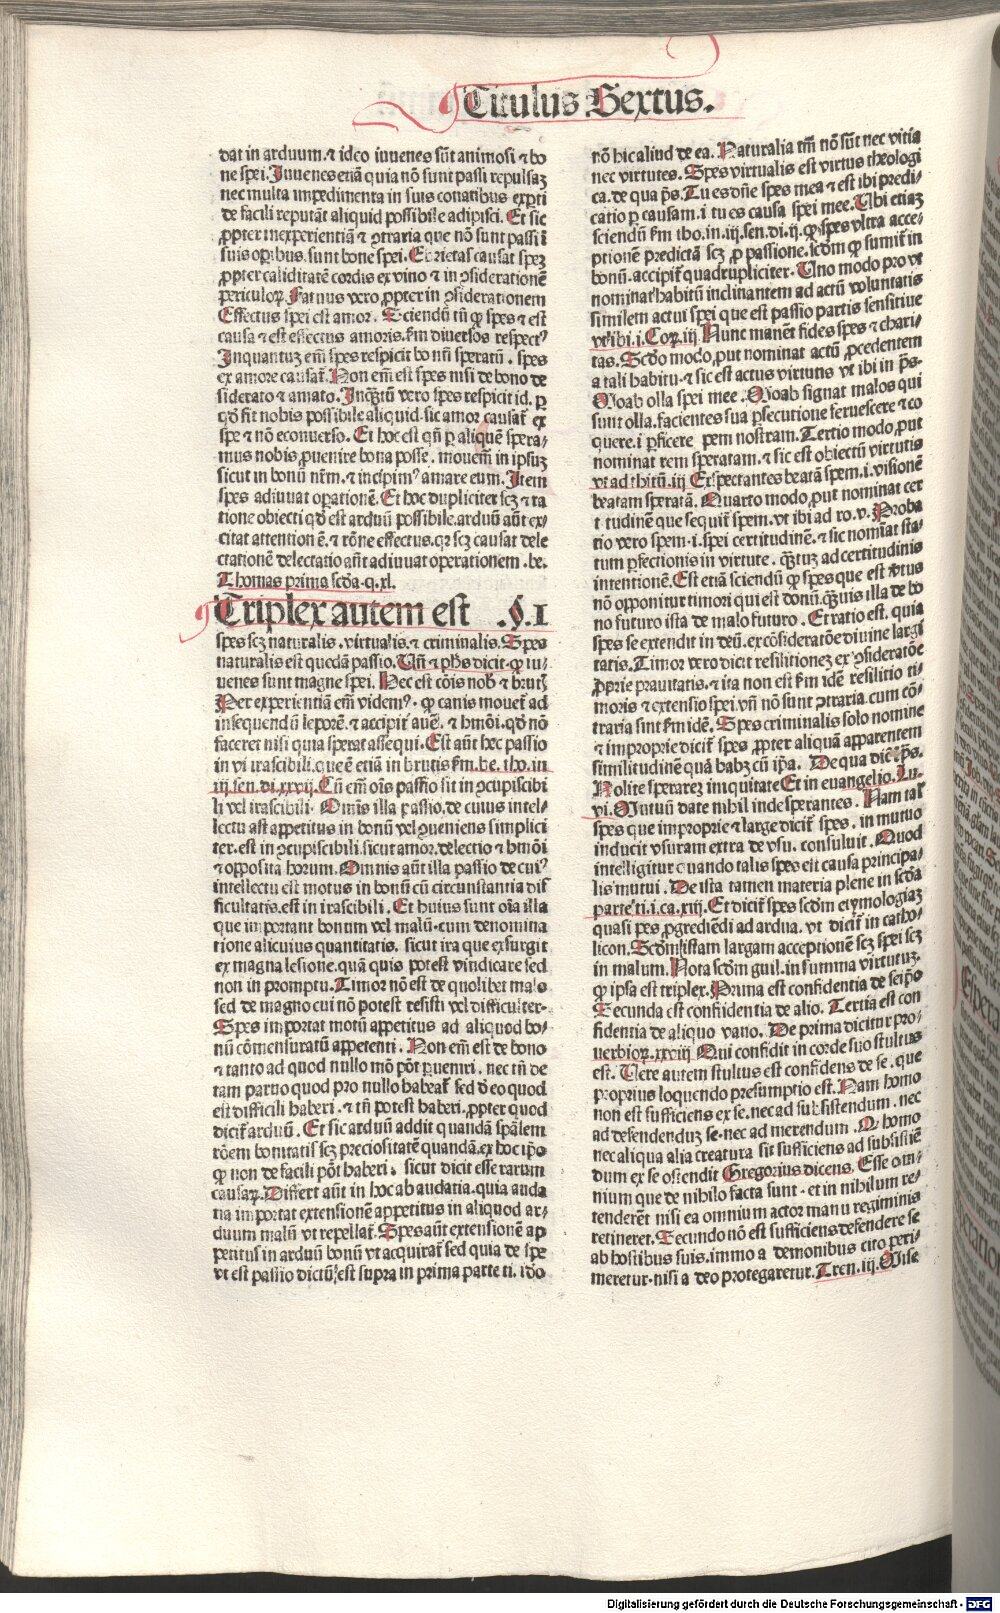 Titulus Sextus.
dat in arduum. ⁊ ideo iuuenes sūt animosi ⁊ bo
ne spei. Juuenes etiā quia nō sunt passi repulsaꝫ
nec multa impedimenta in suis conatibus exꝑti
de facili reputāt aliquid possibile adipisci. Et sic
ꝓpter inexperientiā ⁊ ꝯtraria que nō sunt passi ī
suis oꝑibus. sunt bone spei. Ebrietas causat speꝫ
ꝓpter caliditatē cordis ex vino ⁊ in ꝯsiderationē
periculoꝝ. Fatuus vero ꝓpter in ꝯsiderationem
Effectus spei est amor. Sciendū tn̄ ꝙ spes ⁊ est
causa ⁊ est effectus amoris. fm̄ diuersos respectꝰ
Inquantuꝫ em̄ spes respicit bonū speratū. spes
ex amore causat᷒. Non em̄ est spes nisi de bono de
siderato ⁊ amato. Inq̄ꝫtū vero spes respicit id. ꝑ
qd̓ fit nobis possibile aliquid. sic amor causat᷒ ex
spe ⁊ nō econuerso. Et hoc est qn̄ ꝑ aliquē spera⸗
mus nobis ꝓuenire bona posse. mouem᷒ in ipsuꝫ
sicut in bonū nr̄m. ⁊ incipimꝰ amare eum. Item
spes adiuuat oꝑationē. Et hoc dupliciter scꝫ ⁊ ra
tione obiecti qd̓ est arduū possibile. arduū aūt ex⸗
citat attentionē. ⁊ rōne effectus. qꝛ scꝫ causat dele
ctationē delectatio aūt adiuuat operationem. be.
Thomas prima scd̓a. q. xl.
Triplex autem est .§.I
spes scꝫ naturalis. virtualis. ⁊ criminalis. Spes
naturalis est quedā passio. Un̄ ⁊ ph̓s dicit. ꝙ iu⸗
uenes sunt magne spei. Hec est cōis nob̓ ⁊ brutꝭ
Per experientiā em̄ videmꝰ. ꝙ canis mouet᷒ ad
insequendū leporē. ⁊ accipit᷒ auē. ⁊ hmōi. qd̓ nō
faceret nisi quia sperat assequi. Est aūt hec passio
in vi irascibili. que ē etiā in brutis fm̄. be. tho. in
iij. sen. di. xxvij. Cū em̄ oīs passio sit in ꝯcupiscibi
li vel irascibili. Omīs illa passio. de cuius intel⸗
lectu ast appetitus in bonū vel ꝯueniens simplici
ter. est in ꝯcupiscibili. sicut amor. delectio ⁊ hmōi
⁊ opposita horum. Omnis aūt illa passio de cuiꝰ
intellectu est motus in bonū cū circunstantia dif
ficultatis. est in irascibili. Et huius sunt oīa illa
que important bonum vel malū. cum denomina
tione alicuius quantitatis. sicut ira que exsurgit
ex magna lesione. quā quis potest vindicare sed
non in promptu. Timor nō est de quolibet malo
sed de magno cui nō potest resisti vel difficulter.
Spes importat motū appetitus ad aliquod bo⸗
nū cōmensuratū appetenti. Non em̄ est de bono
⁊ tanto ad quod nullo mō pōt ꝑueniri. nec tn̄ de
tam paruo quod pro nullo habeat᷒ sed d̓ eo quod
est difficili haberi. ⁊ tn̄ potest haberi. ꝓpter quod
dicit᷒ arduū. Et sic arduū addit quandā sp̄alem
rōem bonitatis scꝫ preciositatē quandā. ex hoc ip̄o
ꝙ non de facili pōt haberi. sicut dicit esse rarum
causaꝝ. Differt aūt in hoc ab audatia. quia auda
tia importat extensionē appetitus in aliquod ar⸗
duum malū vt repellat᷒. Spes aūt extensionē ap
petitus in arduū bonū vt acquirat᷒ sed quia de spe
vt est passio dictū est supra in prima parte ti. iđo
nō hic aliud de ea. Naturalia tm̄ nō sūt nec vitia
nec virtutes. Spes virtualis est virtus theologi
ca. de qua p̄s. Tu es dn̄e spes mea ⁊ est ibi predi⸗
catio ꝑ causam. i. tu es causa spei mee. Ubi etiaꝫ
sciendū fm̄ tho. in. iij. sen. di. ij. ꝙ spes vltra acce⸗
ptionē predictā scꝫ ꝓ passione. scd̓m ꝙ sumit᷒ in
bonū. accipit᷒ quadrupliciter. Uno modo pro vt
nominat᷒ habitū inclinantem ad actū voluntatis
similem actui spei que est passio partis sensitiue
vt ibi. i. Coꝝ. iij. Nunc manēt fides spes ⁊ chari⸗
tas. Scd̓o modo. put nominat actū ꝓcedentem
a tali habitu. ⁊ sic est actus virtutis vt ibi in p̄s.
Moab olla spei mee. Moab signat malos qui
sunt olla. facientes sua ꝑsecutione feruescere ⁊ co
quere. i. ꝑficere spem nostram. Tertio modo. put
nominat rem speratam. ⁊ sic est obiectū virtutis
vt ad thitū. iij. Expectantes beatā spem. i. visionē
beatam speratā. Quarto modo. put nominat cer
titudinē que sequit᷒ spem. vt ibi ad ro. v. Proba
tio vero spem. i. spei certitudinē. ⁊ sic nomīat sta⸗
tum ꝑfectionis in virtute. q̄ꝫtuꝫ ad certitudinis
intentionē. Est etiā sciendū ꝙ spes que est v̓tus
nō opponitur timori qui est donū. q̄ꝫuis illa de bo
no futuro ista de malo futuro. Et ratio est. quia
spes se extendit in deū. ex cōsideratōe diuine largi
tatis. Timor vero dicit resilitionez ex ꝯsideratōe
ꝓprie prauitatis. ⁊ ita non est fm̄ idē resilitio ti⸗
moris ⁊ extensio spei. vn̄ nō sunt ꝯtraria. cum cō⸗
traria sint fm̄ idē. Spes criminalis solo nomine
⁊ improprie dicit᷒ spes ꝓpter aliquā apparentem
similitudinē quā habꝫ cū ip̄a. De qua dic̄ p̄s.
Nolite sperare in iniquitate Et in euangelio. Lu.
vi. Mutuū date nihil inde sperantes. Nam tal᷒
spes que improprie ⁊ large dicit᷒ spes. in mutuo
inducit vsuram extra de vsu. consuluit. Quod
intelligitur quando talis spes est causa principa⸗
lis mutui. De ista tamen materia plene in scd̓a
parte ti. i. ca. xiij. Et dicit᷒ spes scd̓m etymologiaꝫ
quasi pes ꝓgrediēdi ad ardua. vt dicit᷒ in catho⸗
licon. Scd̓m istam largam acceptionē scꝫ spei scꝫ
in malum. Nota scd̓m guil. in summa virtutuꝫ.
ꝙ ipsa est triplex. Prima est confidentia de seip̄o
Secunda est confidentia de alio. Tertia est con
fidentia de aliquo vano. De prima dicitur pro⸗
uerbioꝝ. xxviij Qui confidit in corde suo stultus
est. Uere autem stultus est confidens de se. que
proprius loquendo presumptio est. Nam homo
non est sufficiens ex se. nec ad subsistendum. nec
ad defendenduꝫ se. nec ad merendum. Q̇ homo
nec aliqua alia creatura sit sufficiens ad subsistē
dum ex se ostendit Gregorius dicens. Esse om⸗
nium que de nihilo facta sunt. et in nihilum re⸗
tenderēt nisi ea omnium actor manu regiminis
retineret. Secundo nō est sufficiens defendere se
ab hostibus suis. immo a demonibus cito peri⸗
meretur. nisi a deo protegaretur. Tren. iij. Mise
Digitalisierung gefördert durch die Deutsche Forschungsgemeinschaft - DFG